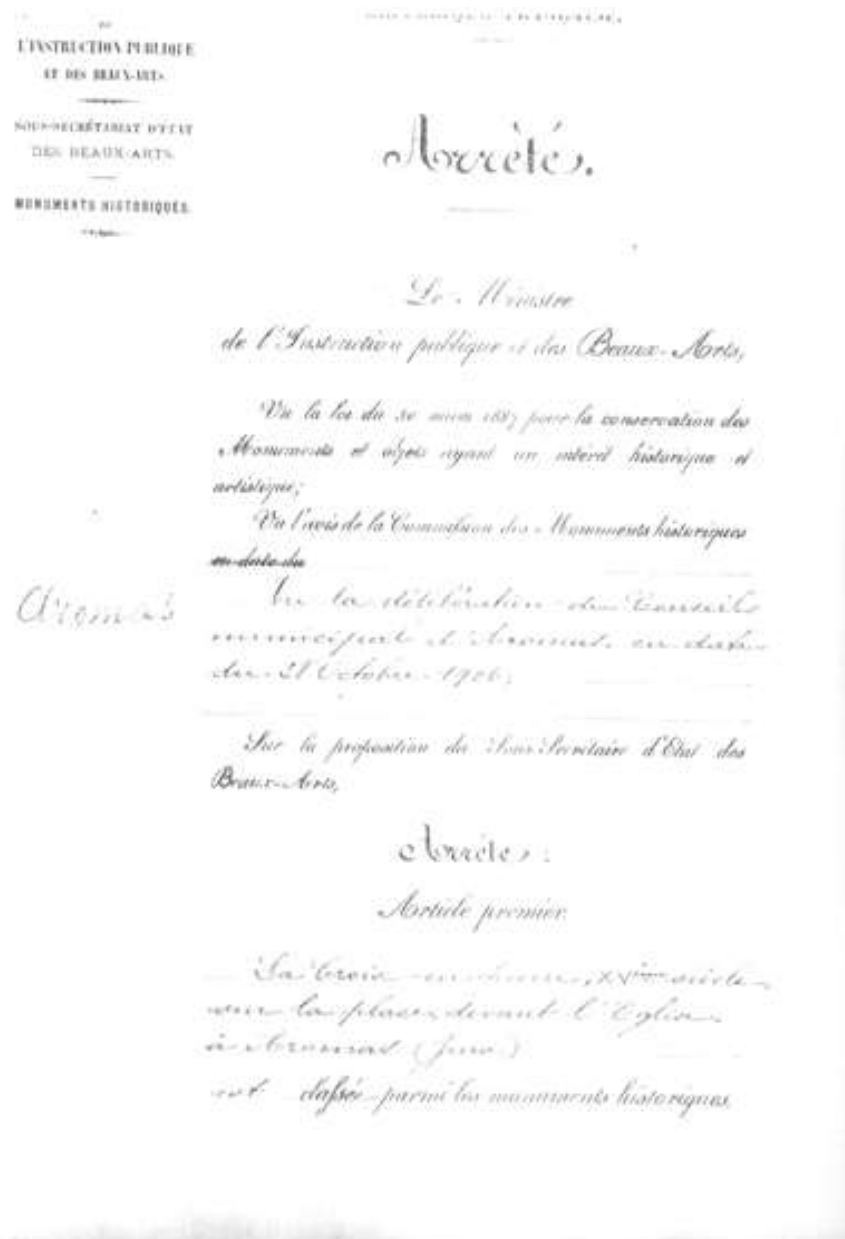 DE
L'INSTRUCTION PUBLIQUE
ET DES BEAUX-ARTS.
SOUS-SECRÉTARIAT D'ÉTAT
DES BEAUX-ARTS.
MONUMENTS HISTORIQUES.
Arrêté.
Le Ministre
de l'Instruction publique et des Beaux-Arts,
Vu la loi du 30 mars 1887 pour la conservation des
Monuments et objets ayant un intérêt historique et
artistique;
Vu l'avis de la Commission des Monuments historiques
en date du
Aromas
Vu la délibération du Conseil
municipal d'Aromas, en date
du 28 Octobre 1906;
Sur la proposition du Sous-Secrétaire d'État des
Beaux-Arts,
Arrête:
Article premier.
La Croix en pierre, XVième siècle
sur la place, devant l'Eglise
à Aromas (Jura)
est classée parmi les monuments historiques.